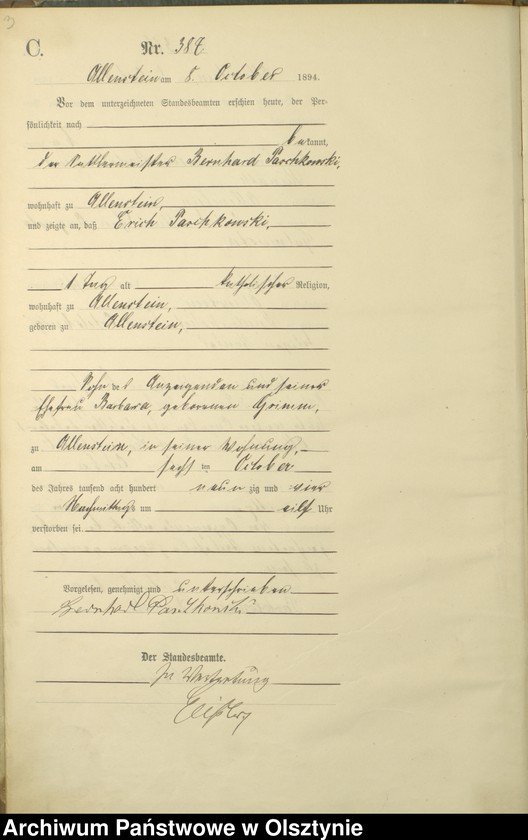 3
C.
Nr. 387
Allenstein am 8. October 1894.
Vor dem unterzeichneten Standesbeamten erschien heute, der Per-
sönlichkeit nach
bekannt,
der Sattlermeister Bernhard Parschkowski,
wohnhaft zu Allenstein,
und zeigte an, daß Erich Parschkowski,
1 Tag alt katholischer Religion,
wohnhaft zu Allenstein,
geboren zu Allenstein,
Sohn des Anzeigenden und seiner
Ehefrau Barbara, geborenen Grimm,
zu Allenstein, in seiner Wohnung,
am sechsten October
des Jahres tausend acht hundert neunzig und vier
Nachmittags um eilf Uhr
verstorben sei.
Vorgelesen, genehmigt und unterschrieben
Bernhard
Der Standesbeamte.
In Vertretung
Archiwum Państwowe w Olsztynie